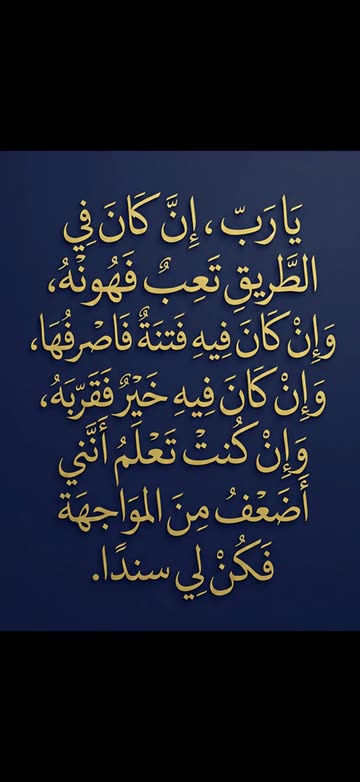 يَا رَبّ، إِنَّ كَانَ فِي
الطَّرِيقِ تَعِبٌ فَهُونْهُ،
وَإِنْ كَانَ فِيهِ فَتنَةٌ فَاصْرفُهَا،
وَإِنْ كَانَ فِيهِ خَيْرٌ فَقَرّبَهُ،
وَإِنْ كُنتْ تَعْلَمُ أَنَّني
أَضَعْفُ مِنَ المَوَاجهَة
فَكُنْ لِي سندًا.